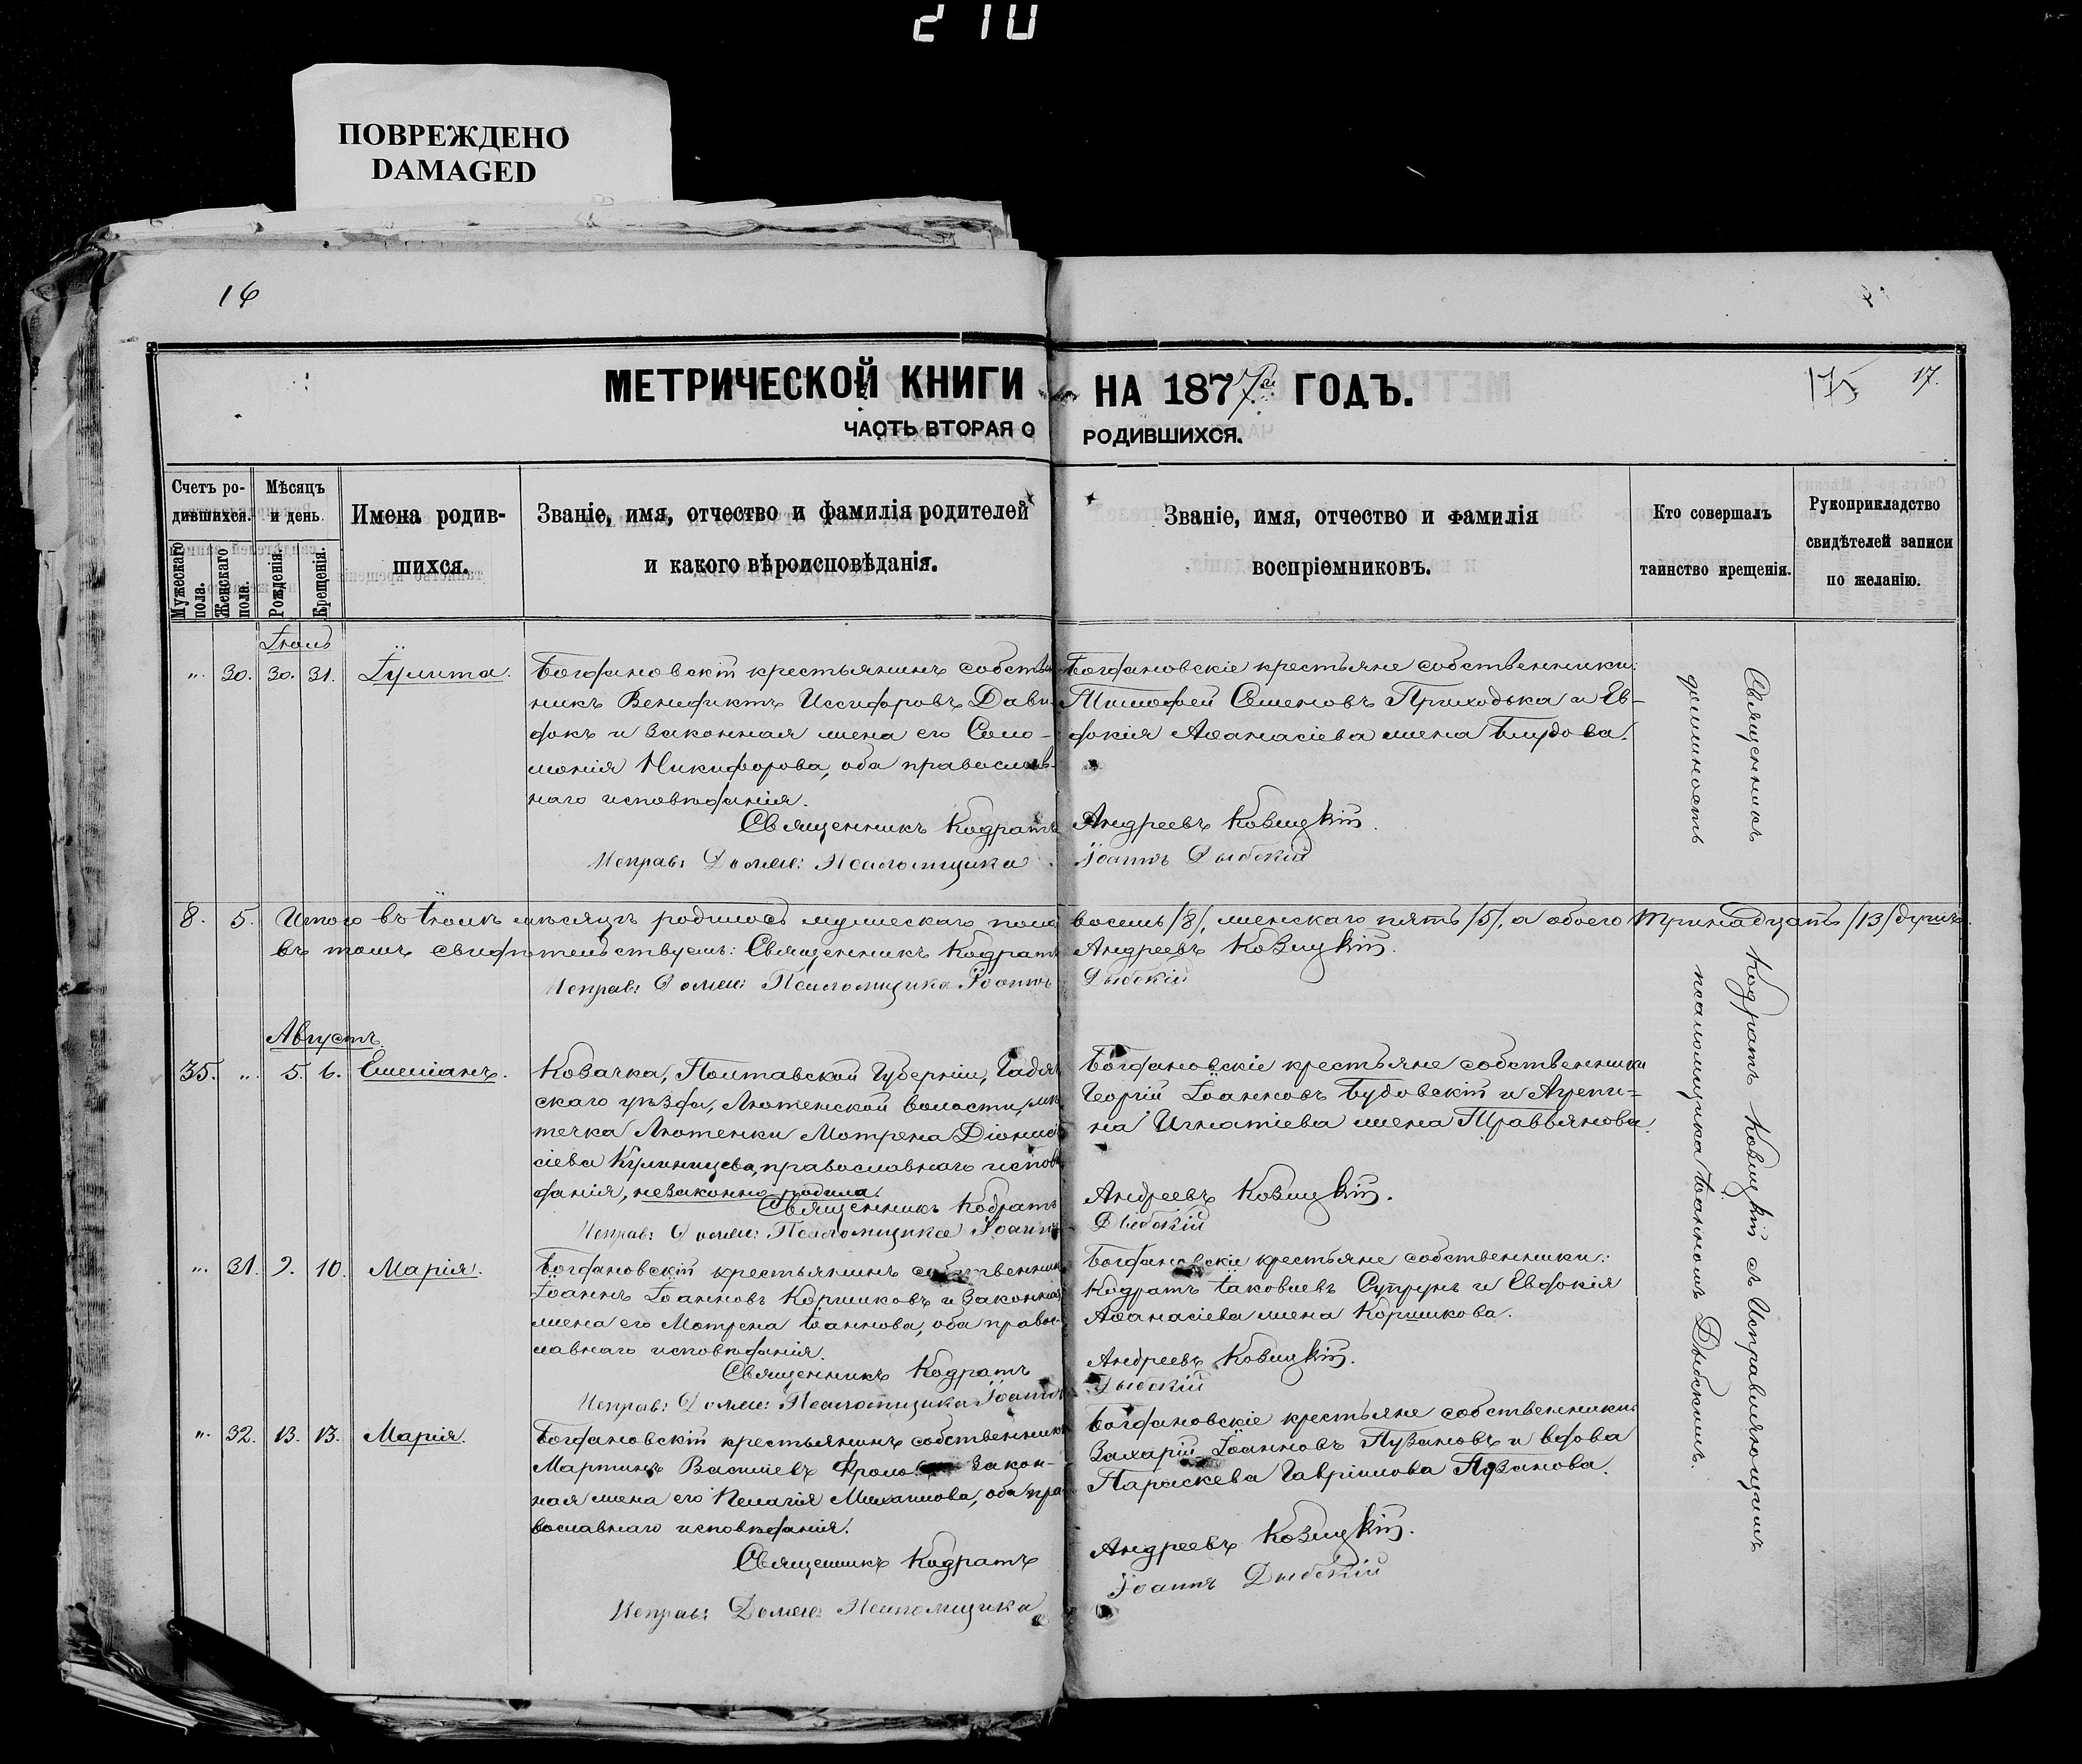 210
ПОВРЕЖДЕНО
DAMAGED
16
МЕТРИЧЕСКОЙ КНИГИ НА 1877й ГОДЪ.
175 17.
ЧАСТЬ ВТОРАЯ О РОДИВШИХСЯ.
Счетъ родившихся.
Мужескаго пола.
Женскаго пола.
Мѣсяцъ и день
Рожденія.
Крещенія.
Имена родив-
шихся.
Званіе, имя, отчество и фамилія родителей
и какого вѣроисповѣданія.
Званіе, имя, отчество и фамилія
воспріемниковъ.
Кто совершалъ
таинство крещенія.
Рукоприкладство
свидѣтелей записи
по желанію.
Іюль
". 30. 30. 31. Іулита.
Богдановскій крестьянинъ собствен
никъ Венификтъ Исидоровъ Дави-
докъ и законная жена его Соло-
монія Никифорова, оба православ-
наго исповѣданія.
Священникъ Кодратъ
Исправ: Должн: Псаломщика
Богдановскіе крестьяне собственники:
Тимофей Семеновъ Приходька и Ев-
докія Аѳанасіева жена
Андреевъ Ковицкій.
Іоаннъ Дыбскій
8. 5. Итого въ Іюлѣ мѣсяцѣ родилось мужескаго пола восемь /8/, женскаго пять /5/, а обоего тринадцать /13/ душъ.
въ томъ свидѣтельствуемъ: Священникъ Кодратъ Андреевъ Ковицкій.
Исправ: Должн: Псаломщика Іоаннъ Дыбскій
Августъ.
35. ". 5. 6. Емеліанъ.
Козачка, Полтавской Губерніи, Гадяч
скаго уѣзда, Лютенской волости, мѣс
течка Лютенки Мотрена Діони
сіева православнаго исповѣ
данія, незаконно родила.
Священникъ Кодратъ
Исправ: Должн: Псаломщика Іоаннъ
Богдановскіе крестьяне собственники
Георгій Іоанновъ Будовскій и Агрепи-
на Игнатіева жена
Андреевъ Ковицкій.
Дыбскій
". 31. 9. 10. Марія.
Богдановскій крестьянинъ собственникъ
Іоаннъ Іоанновъ Коршиковъ и законная
жена его Мотрена Іоаннова, оба правос-
лавнаго исповѣданія.
Священникъ Кодратъ
Исправ: Должн: Псаломщика Іоаннъ
Богдановскіе крестьяне собственники:
Кодратъ Іаковлевъ Супрунъ и Евдокія
Аѳанасіева жена Коршикова.
Андреевъ Ковицкій.
Дыбскій
". 32. 13. 13. Марія.
Богдановскій крестьянинъ собственникъ
Мартинъ Василіевъ закон-
ная жена его Пелагія Михаилова, оба пра-
вославнаго исповѣданія.
Священникъ Кодратъ
Исправ: Должн: Псаломщика
Богдановскіе крестьяне собственники:
Захарій Іоанновъ Пузановъ и вдова
Параскева Гавріилова Пузанова.
Андреевъ Ковицкій.
Іоаннъ Дыбскій
Священникъ Кодратъ Ковицкій съ Исправляющимъ
должность псаломщика Іоанномъ Дыбскимъ.